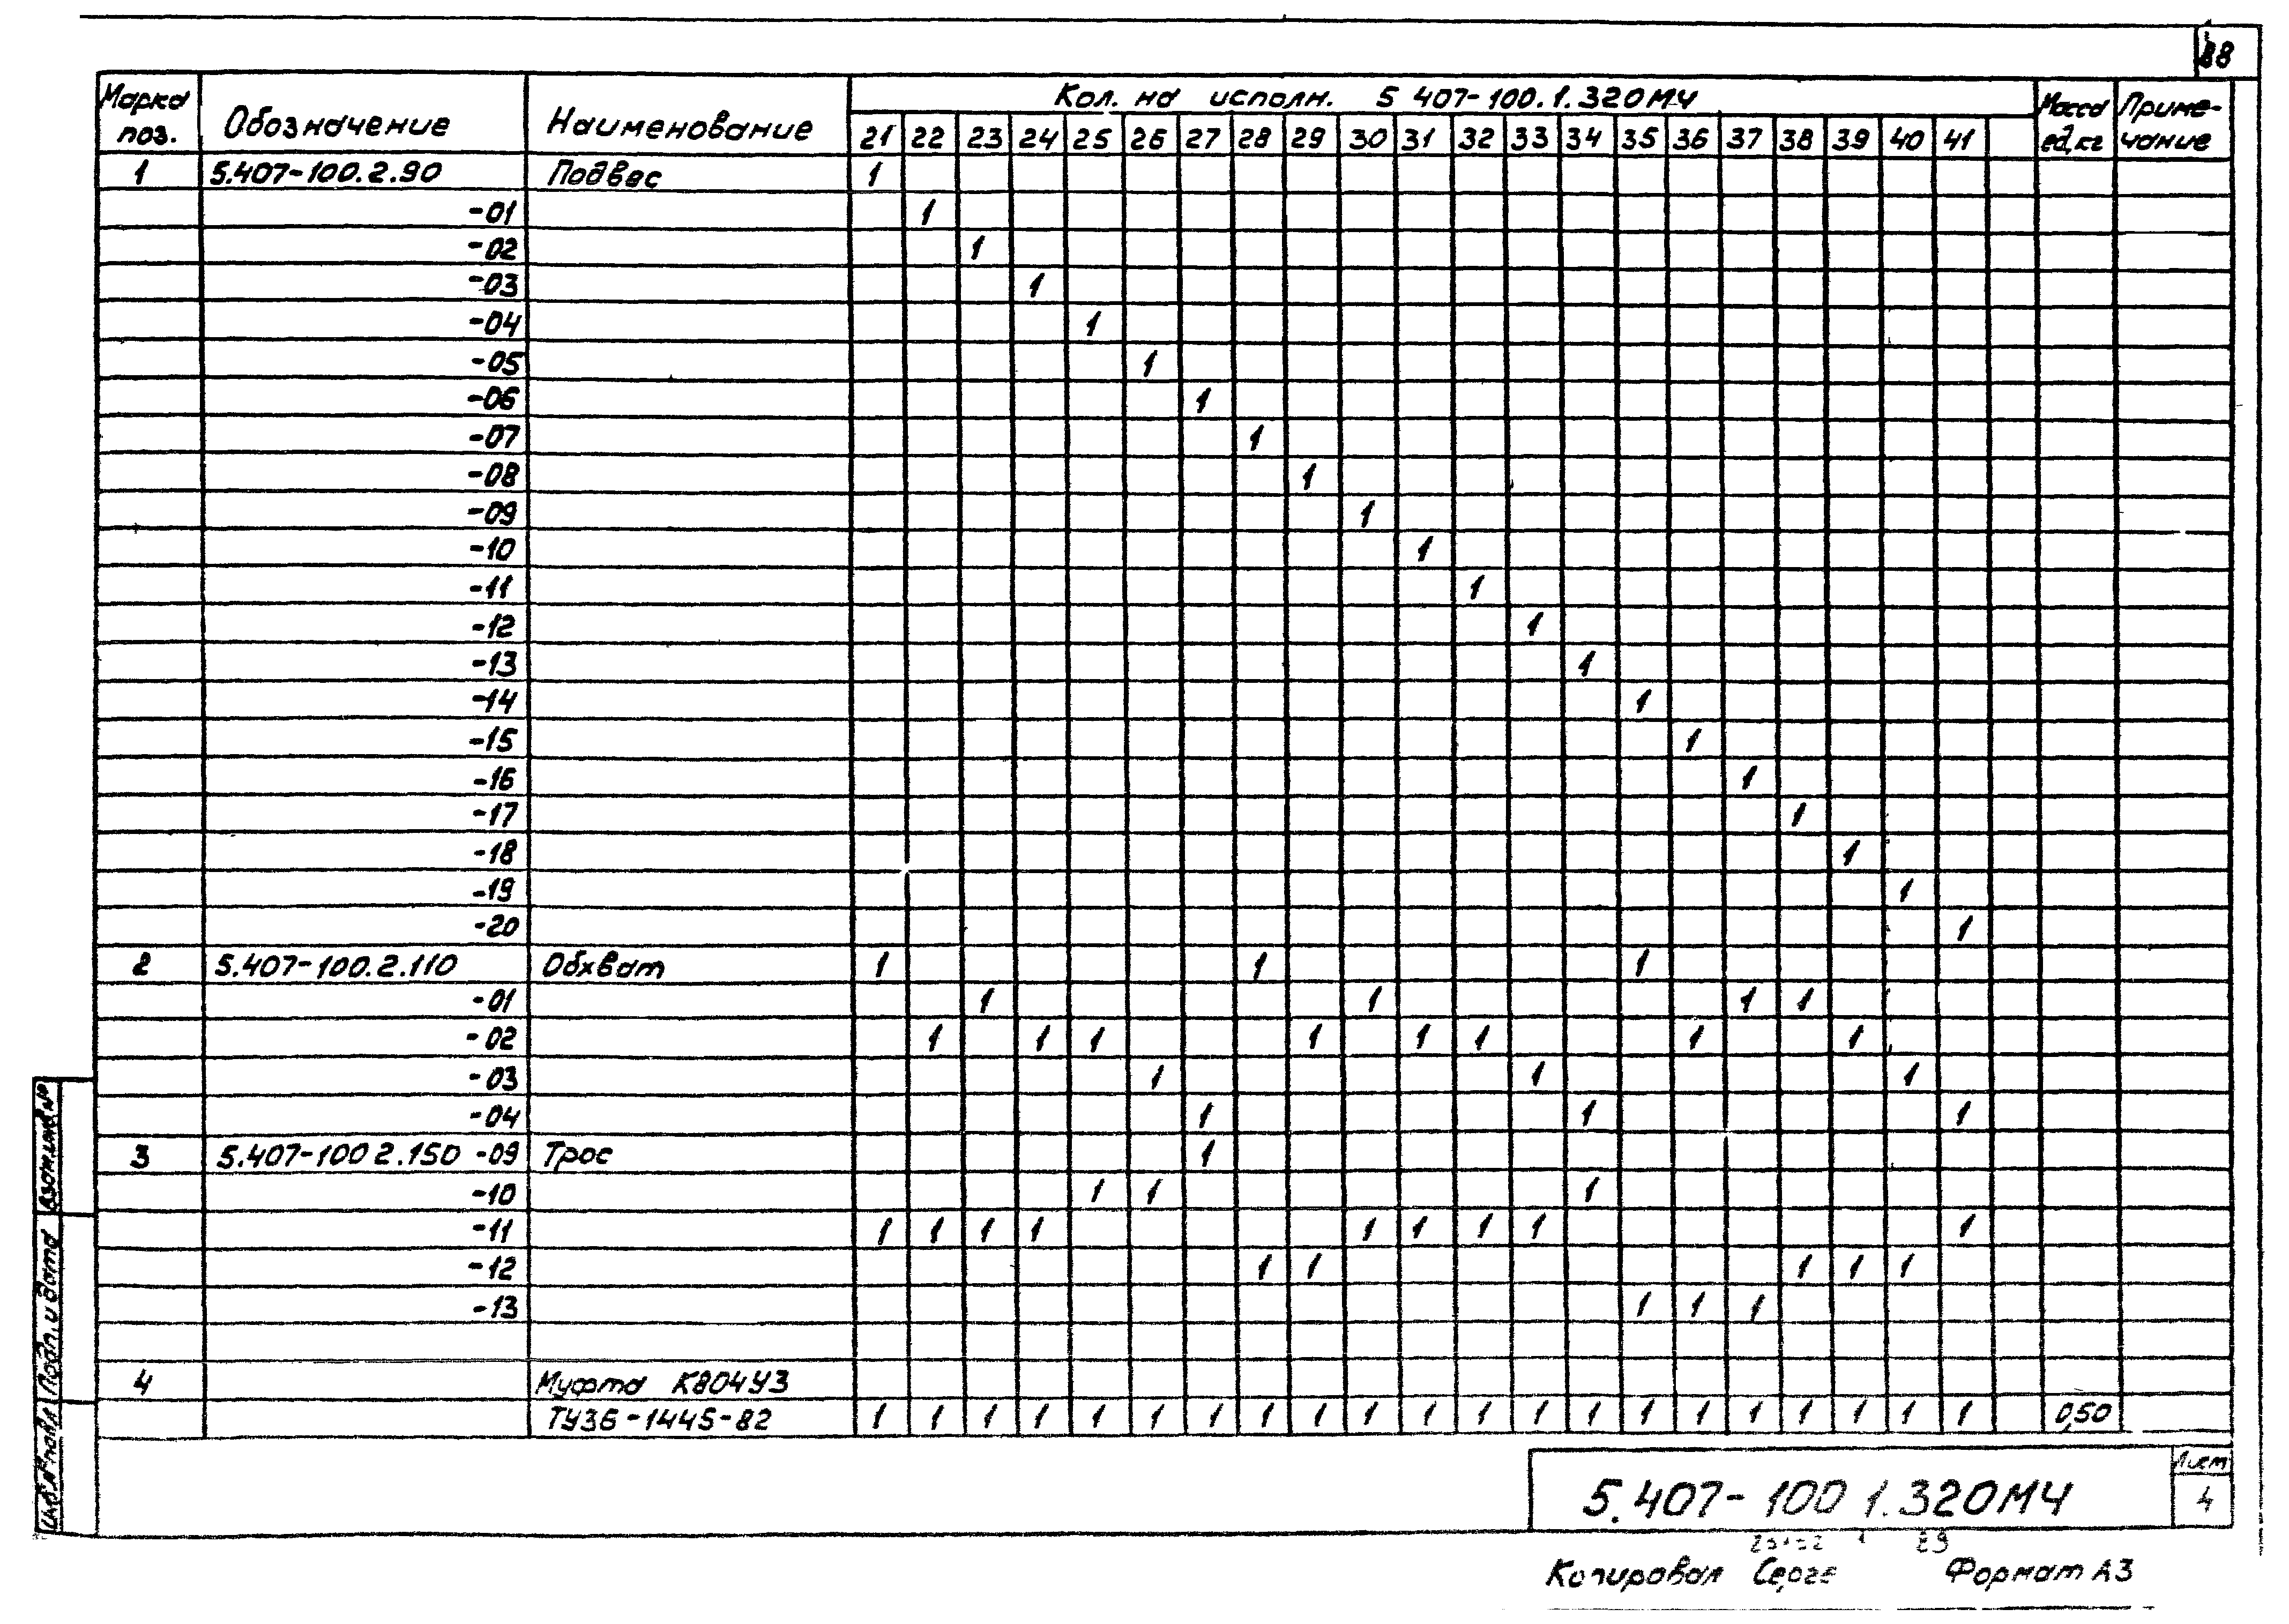 88
Марка поз. Обозначение Наименование Кол. на исполн. 5 407-100.1.320МЧ Масса ед,кг Приме-чание
21 22 23 24 25 26 27 28 29 30 31 32 33 34 35 36 37 38 39 40 41
1 5.407-100.2.90 Подвес 1
-01 1
-02 1
-03 1
-04 1
-05 1
-06 1
-07 1
-08 1
-09 1
-10 1
-11 1
-12 1
-13 1
-14 1
-15 1
-16 1
-17 1
-18 1
-19 1
-20 1
2 5.407-100.2.110 Обхват 1 1 1
-01 1 1 1 1
-02 1 1 1 1 1 1 1 1
-03 1 1 1
-04 1 1 1
3 5.407-100 2.150 -09 Трос 1
-10 1 1 1
-11 1 1 1 1 1 1 1 1 1
-12 1 1 1 1 1
-13 1 1 1
4 Муфта К804У3
ТУ36-1445-82 1 1 1 1 1 1 1 1 1 1 1 1 1 1 1 1 1 1 1 1 1 0,50
Взам.инв№
Подп. и дата
Инв.№ подл
5.407-100 1.320МЧ
Лист
4
29
Копировал Серге Формат А3